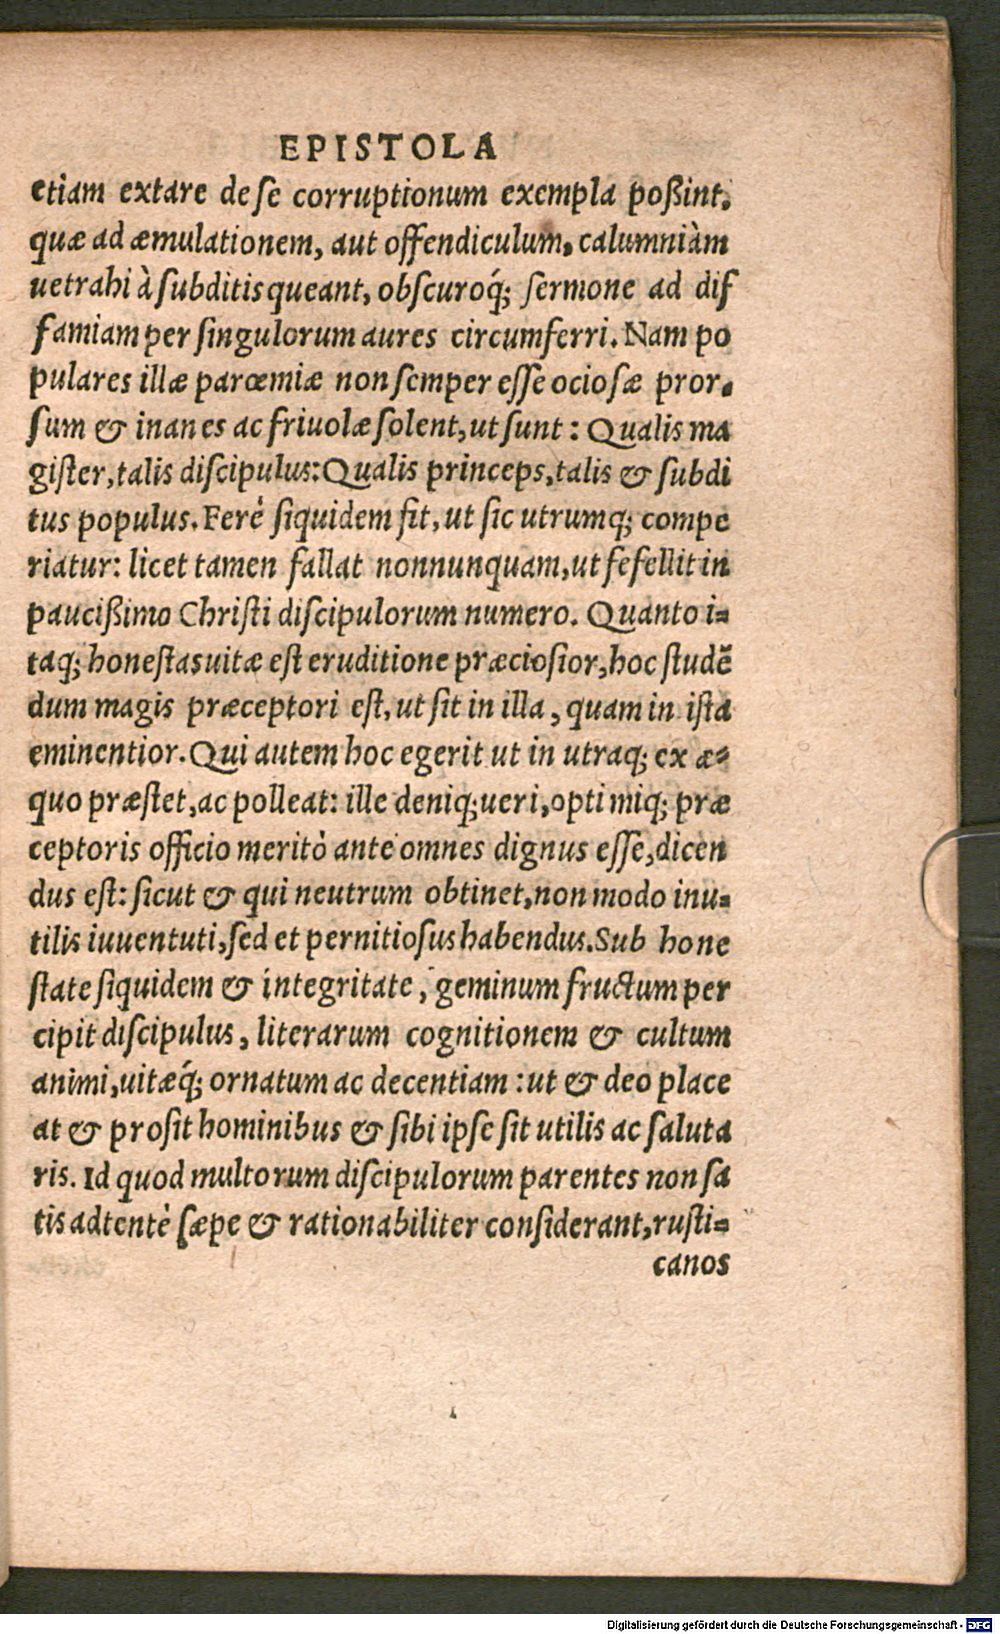 EPISTOLA
etiam extare de se corruptionum exempla poßint.
quæ ad æmulationem, aut offendiculum, calumniàm
uetrahi à subditis queant, obscuroq́; sermone ad dif
famiam per singulorum aures circumferri. Nam po
pulares illæ parœmiæ non semper esse ociosæ pror-
sum & inanes ac friuolæ solent, ut sunt: Qualis ma
gister, talis discipulus: Qualis princeps, talis & subdi
tus populus. Ferè siquidem fit, ut sic utrumq; compe
riatur: licet tamen fallat nonnunquam, ut fefellit in
paucißimo Christi discipulorum numero. Quanto i-
taq; honestas uitæ est eruditione præciosior, hoc studẽ
dum magis præceptori est, ut sit in illa, quam in ista
eminentior. Qui autem hoc egerit ut in utraq; ex æ-
quo præstet, ac polleat: ille deniq; ueri, optimiq; præ
ceptoris officio meritò ante omnes dignus esse, dicen
dus est: sicut & qui neutrum obtinet, non modo inu-
tilis iuuentuti, sed et pernitiosus habendus. Sub hone
state siquidem & integritate, geminum fructum per
cipit discipulus, literarum cognitionem & cultum
animi, uitæq́; ornatum ac decentiam: ut & deo place
at & prosit hominibus & sibi ipse sit utilis ac saluta
ris. Id quod multorum discipulorum parentes non sa
tis adtentè sæpe & rationabiliter considerant, rusti-
canos
Digitalisierung gefördert durch die Deutsche Forschungsgemeinschaft - DFG